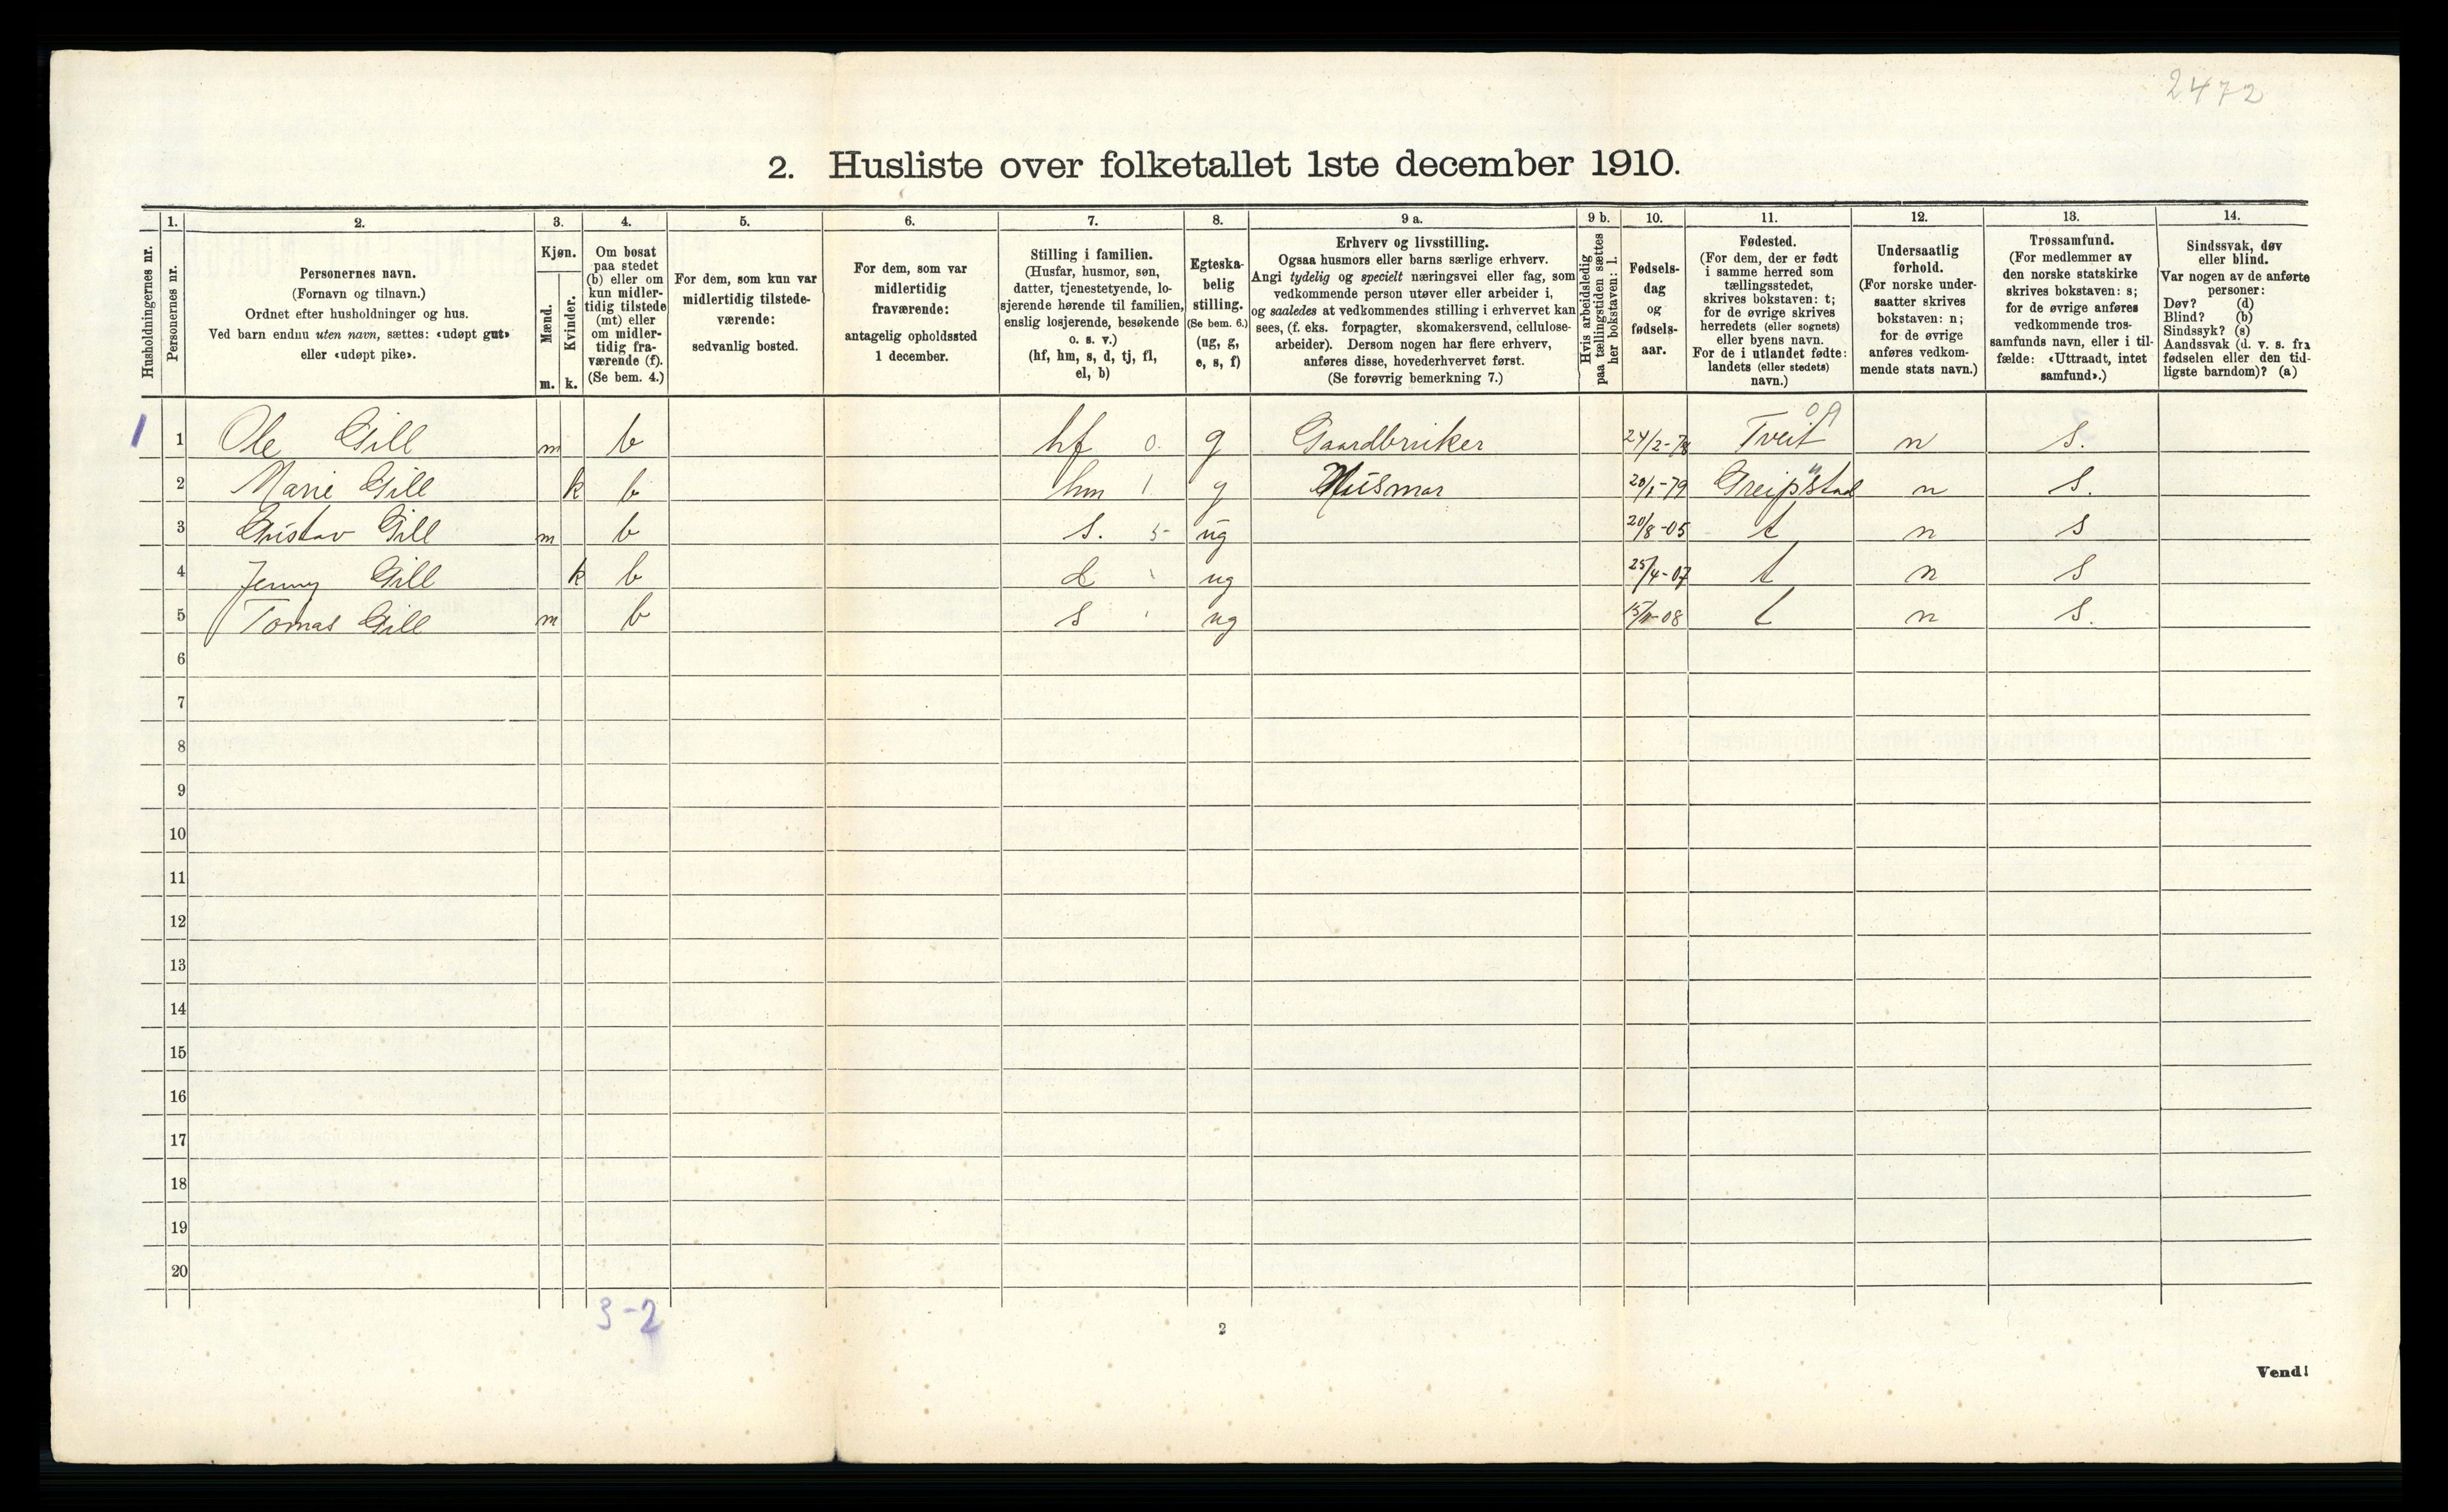 2472
2. Husliste over folketallet 1ste december 1910.
Husholdningernes nr.
1. Personernes nr.
2. Personernes navn.
(Fornavn og tilnavn.)
Ordnet efter husholdninger og hus.
Ved barn endnu uten navn, sættes: «udøpt gut»
eller «udøpt pike».
3. Kjøn.
Mænd. m.
Kvinder. k.
4. Om bosat
paa stedet
(b) eller om
kun midler-
tidig tilstede
(mt) eller
om midler-
tidig fra-
værende (f).
(Se bem. 4.)
5. For dem, som kun var
midlertidig tilstede-
værende:
sedvanlig bosted.
6. For dem, som var
midlertidig
fraværende:
antagelig opholdssted
1 december.
7. Stilling i familien.
(Husfar, husmor, søn,
datter, tjenestetyende, lo-
sjerende hørende til familien,
enslig losjerende, besøkende
o. s. v.)
(hf, hm, s, d, tj, fl,
el, b)
8. Egteska-
belig
stilling.
(Se bem. 6.)
(ug, g,
e, s, f)
9 a. Erhverv og livsstilling.
Ogsaa husmors eller barns særlige erhverv.
Angi tydelig og specielt næringsvei eller fag, som
vedkommende person utøver eller arbeider i,
og saaledes at vedkommendes stilling i erhvervet kan
sees, (f. eks. forpagter, skomakersvend, cellulose-
arbeider). Dersom nogen har flere erhverv,
anføres disse, hovederhvervet først.
(Se forøvrig bemerkning 7.)
9 b. Hvis arbeidsledig
paa tællingstiden sættes
her bokstaven: l.
10. Fødsels-
dag
og
fødsels-
aar.
11. Fødested.
(For dem, der er født
i samme herred som
tællingsstedet,
skrives bokstaven: t;
for de øvrige skrives
herredets (eller sognets)
eller byens navn.
For de i utlandet fødte:
landets (eller stedets)
navn.)
12. Undersaatlig
forhold.
(For norske under-
saatter skrives
bokstaven: n;
for de øvrige
anføres vedkom-
mende stats navn.)
13. Trossamfund.
(For medlemmer av
den norske statskirke
skrives bokstaven: s;
for de øvrige anføres
vedkommende tros-
samfunds navn, eller i til-
fælde: «Uttraadt, intet
samfund».)
14. Sindssvak, døv
eller blind.
Var nogen av de anførte
personer:
Døv? (d)
Blind? (b)
Sindssyk? (s)
Aandssvak (d. v. s. fra
fødselen eller den tid-
ligste barndom)? (a)
1 1 Ole Gill m b hf 0. g Gaardbruker 24/2-78 Tveit 09 n s.
2 Marie Gill k b hm 1 g Husmor 20/1-79 Greipstad " n s.
3 Gustav Gill m b s. 5- ug 20/8-05 t n s
4 Jenny Gill k b d ug 25/4-07 t n s
5 Tomas Gill m b s ug t n s.
6
7
8
9
10
11
12
13
14
15
16
17
18
19
20
3-2
2
Vend!